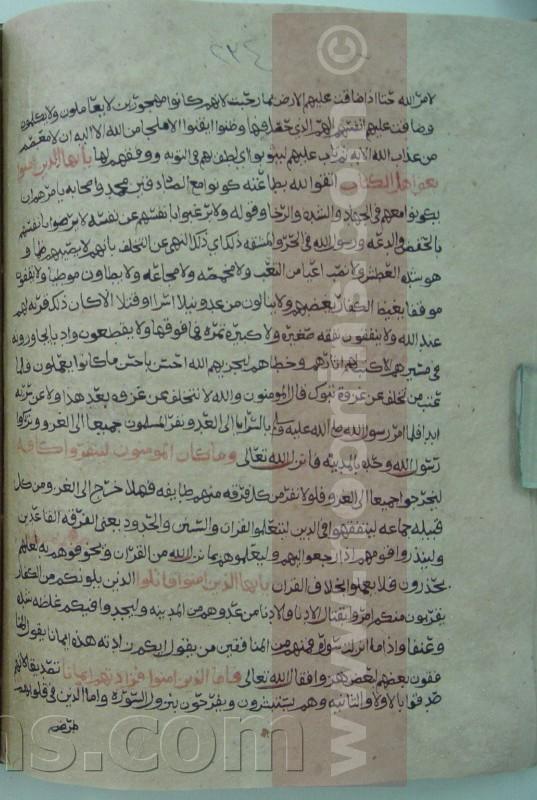 ٢٢٤
لامر الله حتا اذا ضاقت عليهم الارض بما رحبت لانهم كانوا مهجورين لا يعاملون ولا يكلمون
وضاقت عليهم انفسهم الهم الذي حصل فيها وظنوا ايقنوا الا ملجا من الله الا اليه ان لا معتصم
من عذاب الله الا به ثم تاب عليهم ليتوبوا اي لطف بهم في التوبه ووفقهم لها يا ايها الذين امنوا
اهل الكتاب اتقوا الله بطاعته كونوا مع الصادقين محمد واصحابه يامرهم ان
يكونوا معهم في الجهاد والشده والرخا وقوله ولا يرغبوا بانفسهم عن نفسه لا يرضوا بانفسهم
بالخفض والدعه ورسول الله في الحر والمشقه ذلك اي ذلك النهي عن التخلف بانهم لا يصيبهم ظما و
هو شده العطش ولا نصب اعيا من التعب ولا مخمصه ولا مجاعه ولا يطاون موطيا ولا يقفون
موقفا يغيظ الكفار بغضبهم ولا ينالون من عدو نيلا اسرا او قتلا الا كان ذلك قربه لهم
عند الله ولا ينفقون نفقه صغيره ولا كبيره تمره فما فوقها ولا يقطعون واديا يجاوزونه
في مسيرهم الا كتب لهم اثارهم وخطاهم ليجزيهم الله احسن باحسن ما كانوا يعملون فلما
عيب من تخلف عن غزوة تبوك قال المومنون والله لا نتخلف عن غزوه بعد هذا ولا عن سريه
ابدا فلما امر رسول الله صلى الله عليه وسلم بالسرايا الى العدو نفر المسلمون جميعا الى الغزو وتركوا
رسول الله وحده بالمدينه فانزل الله تعالى وما كان المومنون لينفروا كافه
ليخرجوا جميعا الى الغزو فلولا نفر من كل فرقه منهم طايفه فهلا خرج الى الغزو من كل
قبيله جماعه ليتفقهوا في الدين ليتعلموا القران والسنن والحدود يعني الفرقه القاعدين
ولينذروا قومهم اذا رجعوا اليهم وليعلموهم بما نزل الله من القران ويخوفوهم به لعلهم
يحذرون فلا يعملوا بخلاف القران يا ايها الذين امنوا قاتلوا الذين يلونكم من الكفار
يقربون منكم امروا بقتال الادنا والادنا من عدوهم من المدينه وليجدوا فيكم غلظه شده
وعنفا واذا ما انزلت سورة فمنهم من المنافقين من يقول ايكم زادته هذه ايمانا يقول المنا
فقون بعضهم لبعض هزوا فقال الله تعالى فاما الذين امنوا فزادتهم ايمانا تصديقا لانهم
صدقوا بالاولا والثانيه وهم يستبشرون ويفرحون بنزول السوره واما الذين في قلوبهم
مرض
©